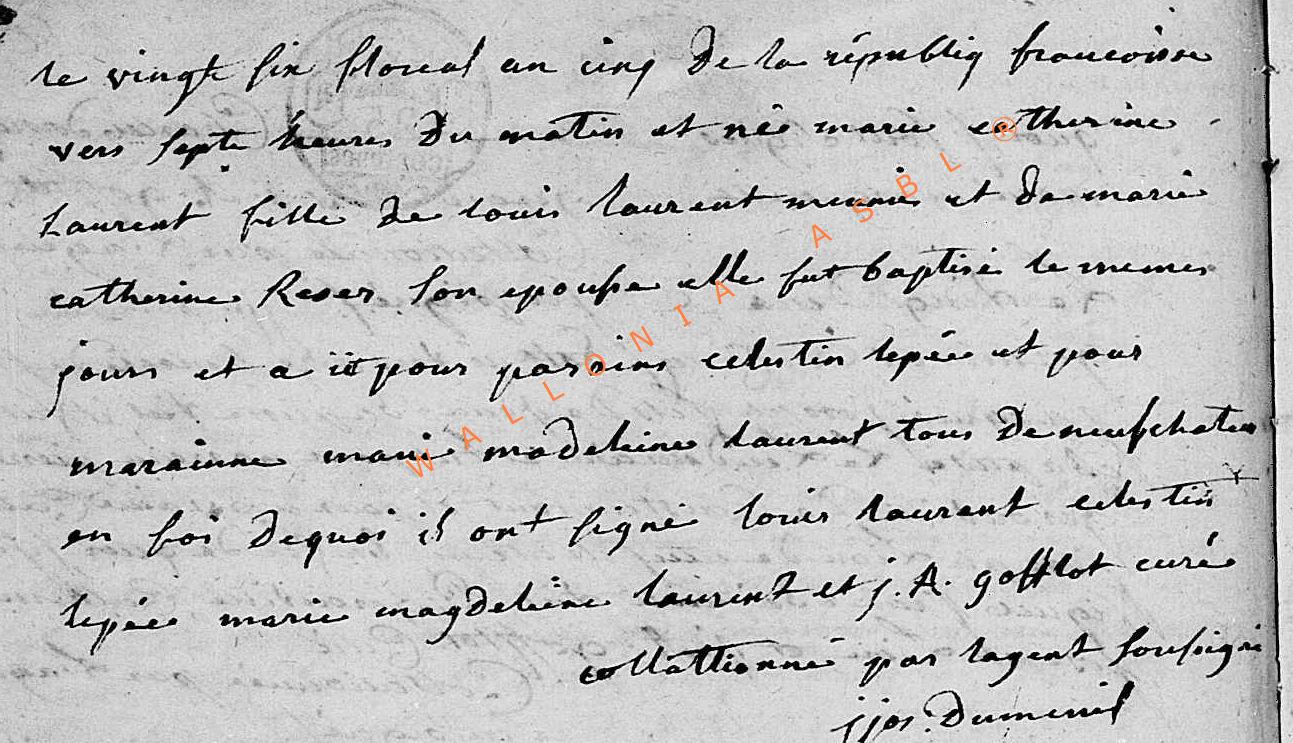 le vingt six floreal an cinq de la républiq francoisse
vers septe heures du matin et né marie catherine
Laurent fille de louis laurent et de marie
catherine Reser son epouse elle fut baptisé le memes
jours et a pour parrains celestin lepée et pour
marainne marie madeleine laurent tous de neufchateau
en foi dequoi il ont signé louis laurent celestin
lepée marie magdeleine laurent et j. A. gofflot curé
collattionné par lagent soussigné
jjos. Dumenil
WALLONIA ASBL ®